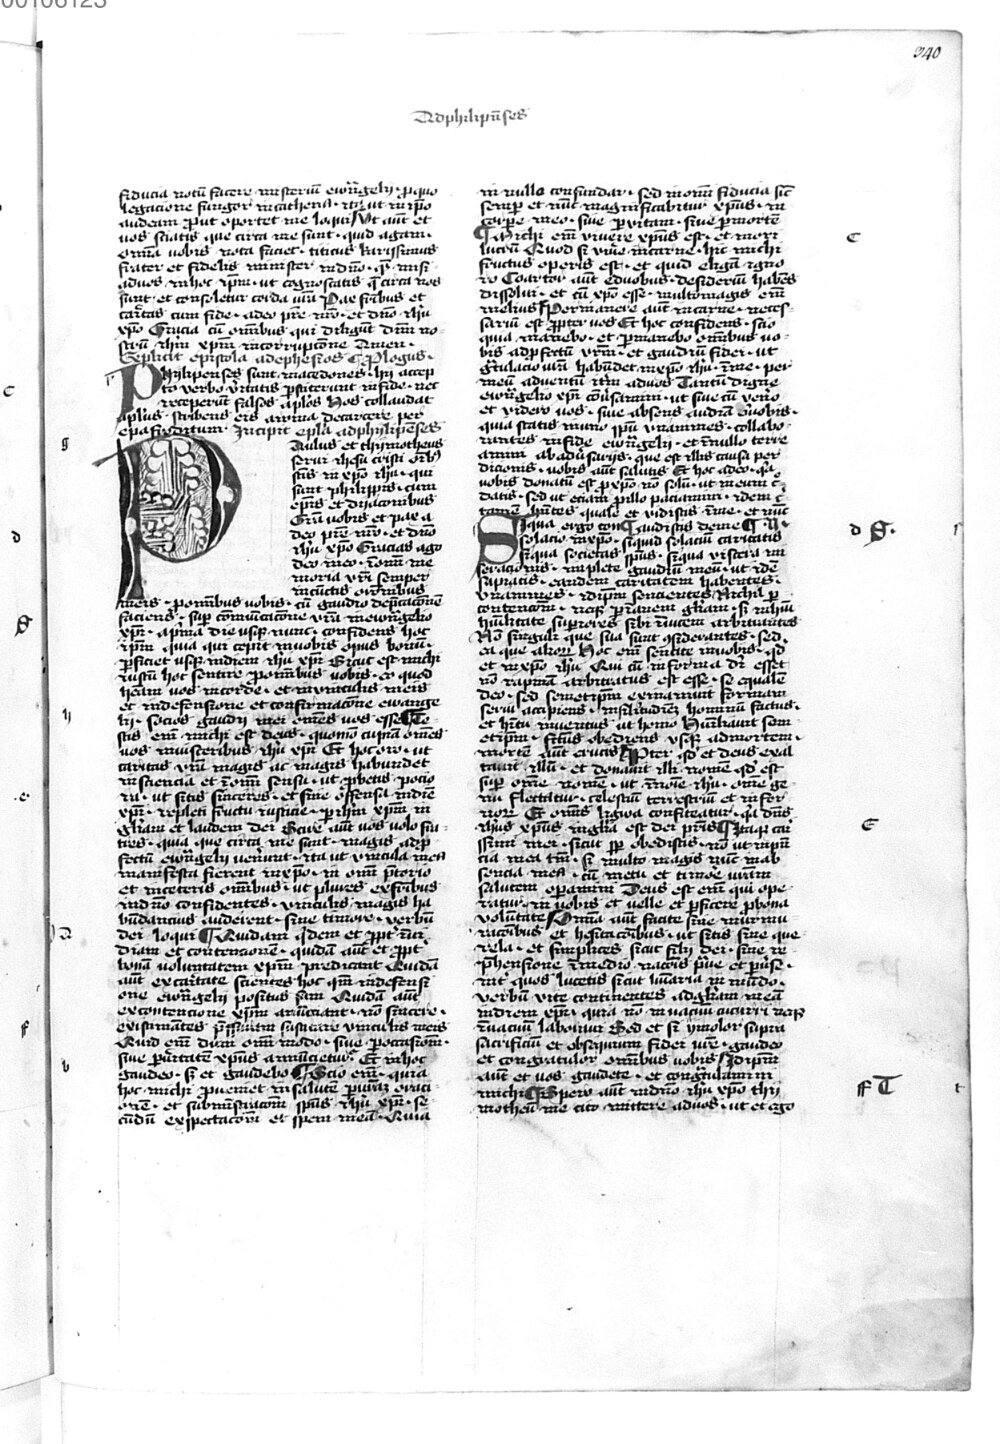 00106123
340
Adphilipenses
fiducia notū facere misteriū ewāgelij · p quo
legacione fungor in cathena · ita ut in ip̄o
audeam put oportet me loqui Vt aut et
uos sciatis que circa me sunt · quid agam ·
om̄ia uobis nota faciet · titicus karissimus
frater et fidelis minister in dn̄o · quē misi
ad uos in hoc ip̄m · ut cognoscatis q̄ circa nos
sunt · et consoletur corda vr̄a Pax fratribus et
caritas cum fide · a deo pr̄e nr̄o · et dn̄o ihū
xp̄o Gracia cū om̄ibus qui diligūt dn̄m no
strū ihm̄ xpm̄ in corrupcōne Amen ·
Explicit epistola ad ephesios Plogus ·
Philipenses sunt macedones · hij accep
to verbo ūitatis pstiterunt in fide · nec
receperūt falsos aplōs Hos collaudat
aplūs · scribens eis a roma de carcere per
epafroditum · Incipit epl̄a ad philipenses
Paulus et thymotheus
serui ihesu cristi om̄ibꝫ
sc̄tis in xp̄o ihū · qui
sunt philippis · cum
ep̄is et dyaconibus
Grā uobis et pax a
deo pr̄e nr̄o · et dn̄o
ihū xp̄o Gracias ago
deo meo · in om̄i me
moria vr̄i semper
in cūctis oronibus
meis · pro om̄ibus uobis · cū gaudio depcacōnem
faciens · sup cōmunicacōne vr̄a in ewāgelio
xpī · a pr̄ma die usqꝫ nunc · confidens hoc
ip̄m · quia qui cepit in uobis opus bonū ·
pficiet usqꝫ in diem ihū xpī Sicut est michi
iustū hoc sentire pro om̄ibus uobis · eo quod
heam uos in corde · et in vinculis meis
et in defensione et confirmacōne ewange
lij · socios gaudij mei om̄es uos esse Te
stis em̄ michi est deus · quomō cupiā om̄es
uos in uisceribus ihū xpī Et hoc oro · ut
caritas vr̄a magis ac magis habundet
in sciencia et in om̄i sensu · ut pbetis pocio
ra · ut sitis sinceres · et sine offensa in diē
xpī · repleti fructu iusticie · p ihm̄ xpm̄ in
glīam et laudem dei Scire aut uos uolo fra
tres · quia que circa me sunt · magis ad p
fectū ewāgelij venerūt · ita ut vincula mea
manifesta fierent in xp̄o · in om̄i pretorio
et in ceteris om̄ibus · ut plures ex fr̄ibus
in dn̄o confidentes · vinculis magis ha
bundancius auderent · sine timore · verbū
dei loqui Quidam q̄dem et ppt̄ inui
diam et contencionē · quidā aut et ppt̄
bonā voluntatem xpm̄ predicant Quidā
aut ex caritate scientes hoc · qm̄ in defensi
one ewāgelij positus sum Quidā aut
ex contencione xpm̄ annūciant · nō sincere ·
existimantes pssuram suscitare vinculis meis
Quid em̄ dum om̄i modo · siue p occasionem ·
siue p ueritatē xpus annuncietur · Et in hoc
gaudeo · sꝫ et gaudebo Scio em̄ · quia
hoc michi proueniet in salutē p uram oraci
onē · et subministracōm spūs ihū xpī · se
cūdū exspectacōm et spem meā · Quia
in nullo confundar · sed in om̄i fiducia sic̄
semp et nūc magnificabitur xpūs · in
corpe meo · siue p vitam · siue p mortē
Michi em̄ viuere xpūs est · et mori
lucrū Quod si viue in carne · hic michi
fructus operis est · et quid eligā igno
ro Coartor aut e duobus · desideriū habēs
dissolui · et cū xp̄o esse · multo magis em̄
melius Permanere aut in carne · neces
sariū est ppter uos Et hoc confidens · scio
quia manebo · et pmanebo om̄ibus uo
bis ad pfectū vr̄m · et gaudiū fidei · ut
grātulacio vrā habūdet in xp̄o ihū · in me · per
meū aduentū itm̄ ad uos Tantū digne
ewāgelio xpī conūsamini · ut siue cū vēo
et videro uos · siue absens audiā de uobis ·
quia statis in uno spū unanimes · collabo
rantes in fide ewāgelij · et in nullo terre
amini ab aduersarijs · que est illis causa per
dicionis · uobis aut salutis Et hoc a deo · qa
uobis donatū est p xp̄o nō solū · ut in eum c̄
datis · sed ut etiam p illo paciamini · idem c̄
tamen hn̄tes quale et vidistis in me · et nūc
audistis de me Si
qua ergo con
solacio in xp̄o · siquid solaciū caritatis
siqua societas spūs · siqua viscera mi
seracōnis · implete gaudiū meū · ut idē
sapiatis · eandem caritatem habentes ·
vnanimes · id ip̄m sencientes Nichil p
contencōm · neqꝫ p inanem glīam · sꝫ in hu
militate supiores sibi inuicem arbitrantes
Nō singuli que sua sunt cōsiderantes · sed
ea que alioꝝ Hoc em̄ sentite in uobis · qd
et in xp̄o ihū Qui cū in forma dī esset
nō rapinā arbitratus est esse · se equalē
deo · sed semetip̄m exinaniuit formam
serui accipiens · in similitudinē hominū factus ·
et hītu inuentus ut homo Humiliauit sem
etip̄m · fctūs obediens usqꝫ ad mortem ·
mortē aut crucis Ppter qd et deus exal
tauit illū · et donauit illi nomē qd est
sup om̄e nomē · ut in noīe ihū · om̄e ge
nu flectatur · celestiū terrestriū et infer
noꝝ Et om̄is lingwa confiteatur · qa dn̄s
ihūs xpūs in gl̄ia est dei pr̄is Itaqꝫ car
issimi mei · sicut sp obedistis · nō ut in pn̄
cia mea tm̄ · sꝫ multo magis nūc in ab
sencia mea · cū metu et timore urām
salutem opamini Deus est em̄ qui ope
ratur in uobis et velle et pficere p bona
volūtate Om̄ia aut facite sine murmu
racōibus et hesitacōibus · ut sitis sine que
rela · et simplices sicut filij dei · sine re
phensione in medio nacōis praue et puse ·
int̄ quos lucetis sicut luīaria in mūdo ·
verbū vite continentes ad glīam meā
in diem xpī · quia nō in uacuū cucurri neqꝫ
in uacuū laboraui Sed et si ymolor supra
sacrificiū et obsequium fidei ur̄e · gaudeo
et congratulor om̄ibus uobis Id ip̄m
aut et uos gaudete · et congr̄tulamini
michi Spero aut in dn̄o ihū xp̄o thy
motheū me cito mittere ad uos · ut et ego